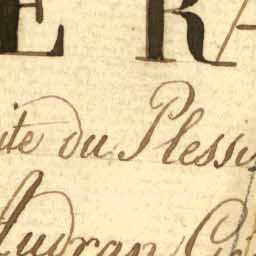 E RA
ite du Plessis
Audran Gr